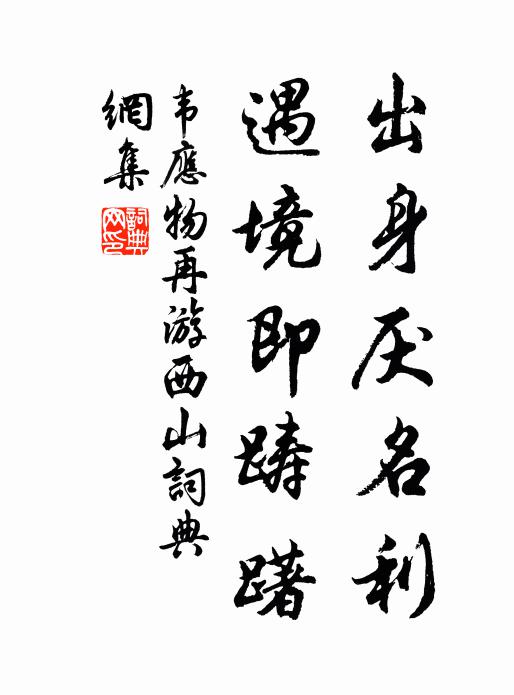 出身厌名利
遇境即踌躇
韦應物再游西山詞典
網集
詞典网印